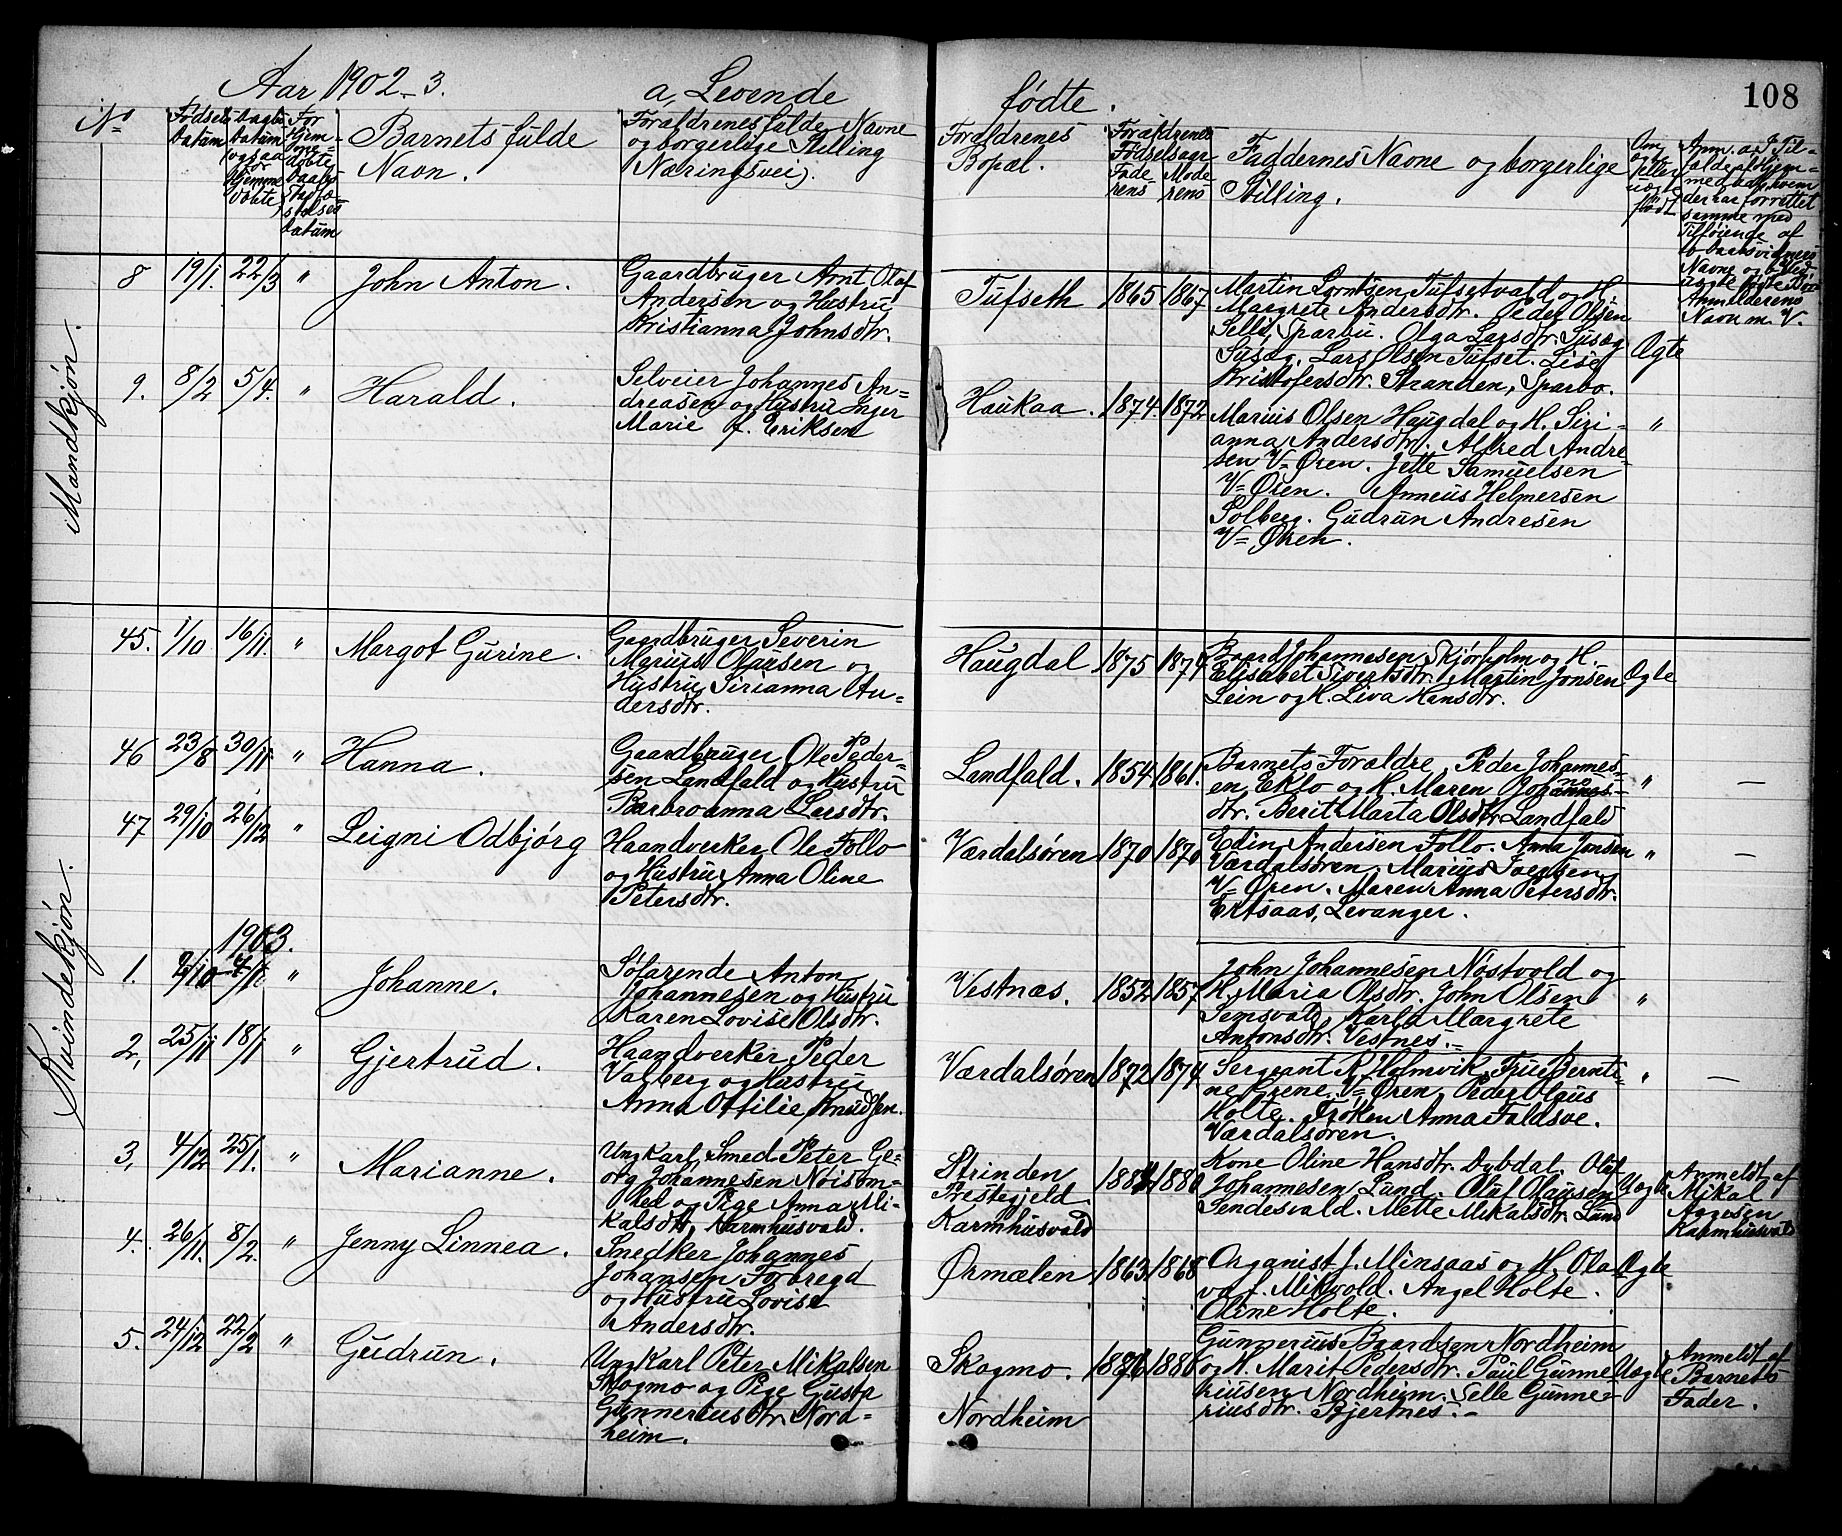 Aar 1902-3.
a, Levende
fødte.
108
No
Fødsels
Datum
Daabs
Datum
ogsaa
for
Hjemme
døbte
For
Hjem-
me-
døbte
Daabs
Stadfæ-
stelses
Datum
Barnets fulde
Navn.
Forældrenes fulde Navne
og borgerlige Stilling
(Næringsvei).
Forældrenes
Bopæl.
Forældrenes
Fødselsaar
Fade-
rens
Mode
rens
Faddernes Navne og borgerlige
Stilling.
Om
Ægte
eller
uægte
født
Anm. a. I Til-
fælde af Hjem-
medaab, hvem
der har forrettet
samme med
Tilføiende af
Daabsvidners
Navne og b. Ved
uægte fødte Børn
Anmelderens
Navn m. V.
Mandkjøn.
8 19/1. 22/3 " John Anton.
Gaardbruger Arnt Olaf
Andersen og Hustru
Kristianna Johnsdtr.
Tufseth 1865 1867
Martin Lorntsen Tufsetvald og H.
Margrete Andersdtr. Peder Olsen
Selli, Sparbu. Olga Larsdtr. Susæg
Susæg. Lars Olsen Tufset. Lise
Kristofersdtr. Stranden, Sparbo.
Ægte
9. 8/2 5/4. " Harald.
Selveier Johannes An-
dreasen og Hustru Inger
Marie f. Eriksen
Haukaa. 1874. 1872
Marius Olsen Haugdal og H. Siri-
anna Andersdtr. Alfred Andre-
sen V=Øren. Jette Samuelsen
V=Øren. Anneus Helmersen
Solberg. Gudrun Andresen
V=Øren.
"
Kvindekjøn.
45. 1/10 16/11. " Margot Gurine.
Gaardbruger Severin
Marius Olausen og
Hustru Sirianna An-
dersdtr.
Haugdal 1875 1874
Baard Johannesen Skjørholm og H.
Elisabet Sivertsdtr. Martin Jonsen
Lein og H. Liva Hansdtr.
Ægte
46 23/8 30/11 " Hanna.
Gaardbruger Ole Peder-
sen Landfald og Hustru
Barbroanna Larsdtr.
Landfald. 1854 1861.
Barnets Forældre, Peder Johannes-
en Eklo og H. Maren Johannes-
dtr. Berit Marta Olsdtr. Landfald
" —
47 29/10 26/12 " Leigni Odbjørg
Haandverker Ole Follo
og Hustru Anna Oline
Petersdtr.
Værdalsøren 1870 1870
Edin Andersen Follo. Anna Jansen
Værdalsøren. Marius Ivertsen
V=Øren. Maren Anna Petersdtr.
Ertsaas, Levanger.
" —
1903.
1. 2/10 4/1 " Johanne.
Søfarende Anton
Johannesen og Hustru
Karen Lovise Olsdtr.
Vestnæs. 1852 1857
John Johannesen Nøstvold og
H. Maria Olsdtr. John Olsen
Semsvald, Karla Margrete
Antonsdtr. Vestnes.-
"
2, 25/11 18/1 " Gjertrud.
Haandverker Peder
Valberg og Hustru
Anna Ottilie Knudsen.
Værdalsøren 1872 1874
Sergeant R. Holmvik, Frue Bernti-
ne Grene, V=Øren. Peder Olaus
Holte. Frøken Anna Faldsve.
Værdalsøren.
" —
3, 4/12 25/1. " Marianne.
Ungkarl, Smed Peter Ge-
org Johannesen Nøisom-
hed og Pige Anna Mi-
kalsdtr, Karmhusvald.
Strinden
Prestegjeld
Karmhusvald
1880
Kone Oline Hansdtr. Dybdal. Oluf
Johannesen Lund. Oluf Olausen
Sendesvald. Mette Mikalsdtr. Lund
Uægte
Anmeldt af
Mikal
Aagesen
Karmhusvald
4. 26/11. 8/2. " Jenny Linnea.
Snedker Johannes
Johansen Forbregd
og Hustru Lovise
Andersdtr.
Ørmælen 1863 1868
Organist J. Minsaas og H. Ola-
va f. Mikvold. Angel Holte.
Oline Holte.
Ægte
5. 24/12 22/2 " Gudrun.
Ungkarl Peter Mikalsen
Skogmo og Pige Gusta
Gunneriusdtr. Nord-
heim.
Skogmo.
Nordheim
1886
Gunnerius Baardsen Nordheim
og H. Marit Pedersdtr. Paul Gunne-
riusen Nordheim, Selle Gunne-
riusdtr. Bjertnes.-
Uægte
Anmeldt af
Barnets
Fader.